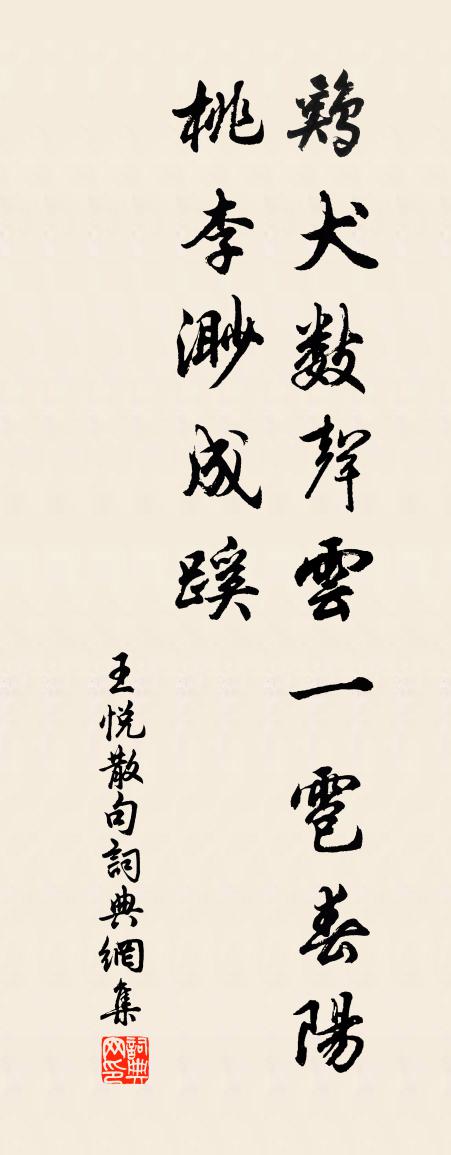 鷄犬數聲雲一雹春陽
桃李渺成蹊
王悦散句詞典網集
詞典网印